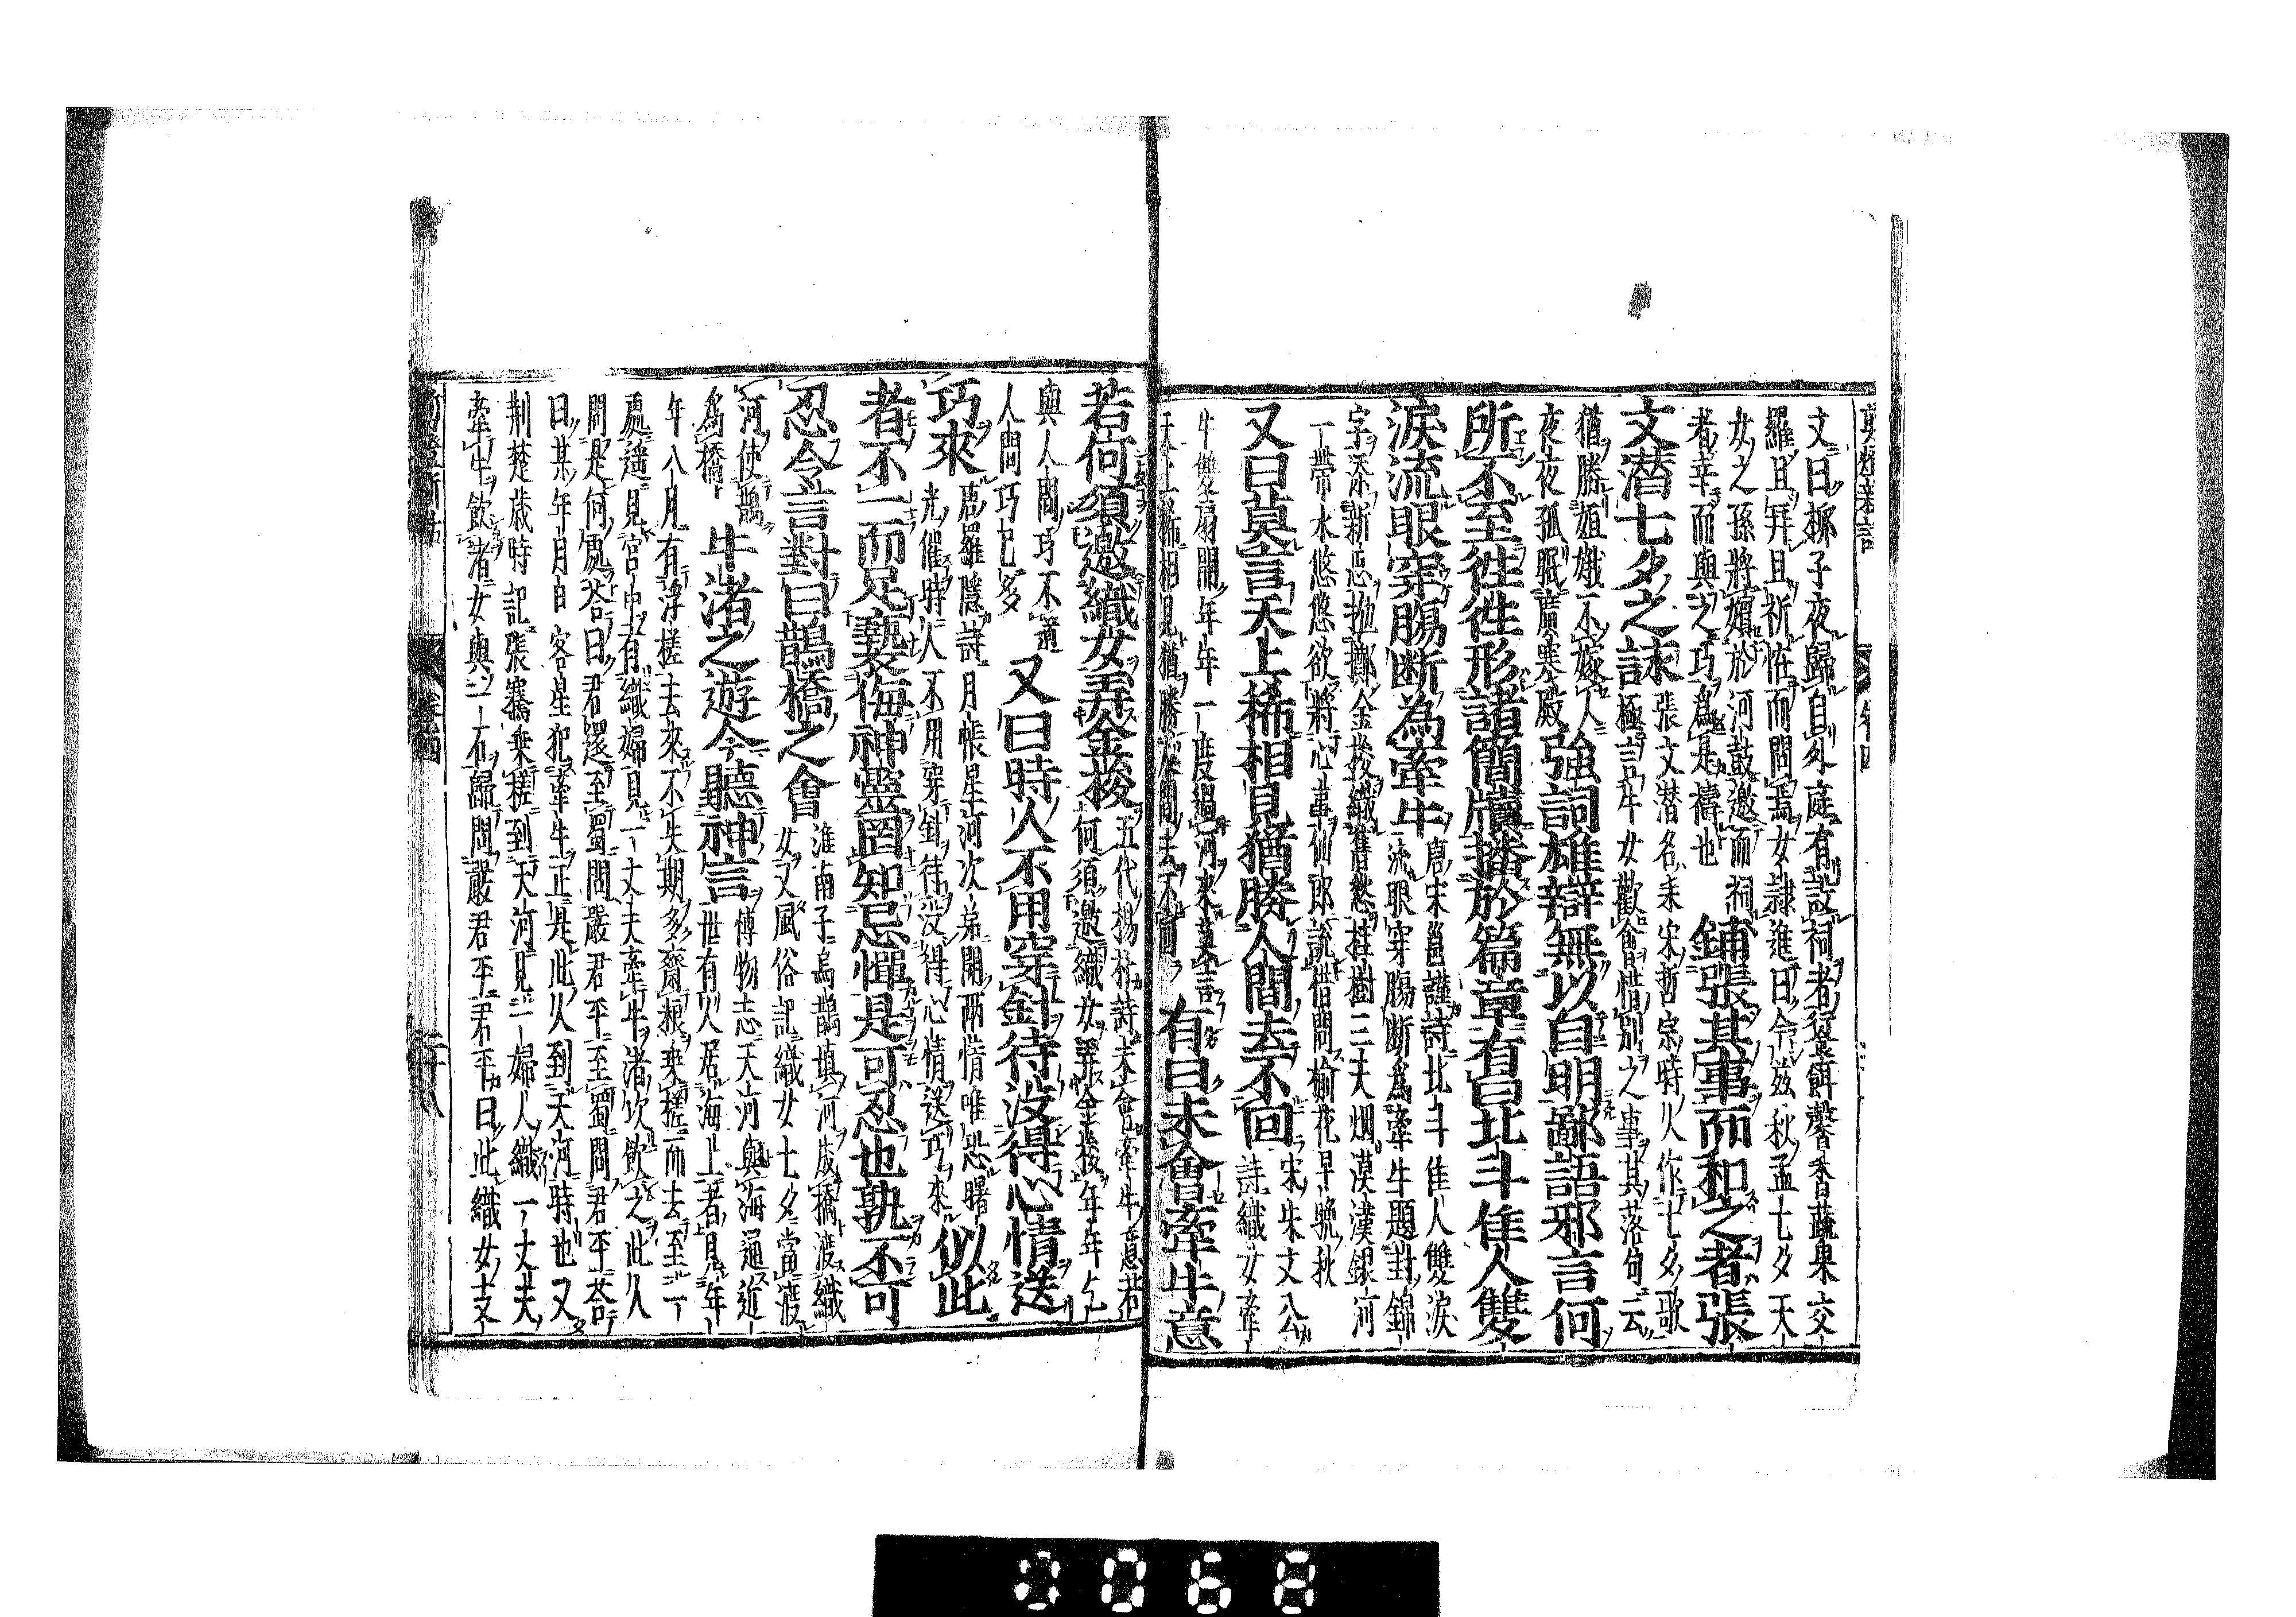 文曰柳子夜歸自外庭有設祠者餰餌馨香蔬果交
羅且拜且祈恠而問焉女隷進曰今玆秋孟七夕天
女之孫將嬪於河鼓邀而祠
者幸而與之巧爲是禱也
鋪張其事而和之者張
文潜七夕之詠
張文潜名耒宋哲宗時人作七夕歌
極言牛女歡會惜別之事其落句云
猶勝姮娥不嫁人
夜夜孤眠廣寒殿
強詞雄辯無以自明鄙語邪言何
所不至徃徃形諸簡牘播於篇章有曰北斗佳人雙
淚流眼穿膓断為牽牛
唐宋邕謹詩北斗佳人雙淚
流眼穿膓断為牽牛題封錦
字添新恨抛擲金梭織舊愁桂樹三夫烟漠漠銀河
一帶水悠悠欲將心事仙郎說借問榆花早晚秋
又曰莫言天上稀相見猶勝人間去不回
宋朱文公
詩織女牽
牛雙扇開年年一度過河來莫言
天上稀相見猶勝人間去不回
有曰未會牽牛意
若何須邀織女弄金梭
五代楊朴詩未會牽牛意若
何須邀織女弄金梭年年乞
與人間巧不道
人間巧已多
又曰時人不用穿針待沒得心情送
巧來
唐羅隱詩月帳星河次弟開兩情唯恐曙
光催時人不用穿針待沒得心情送巧來
似此
者不一而足褻侮神靈罔知忌憚是可忍也孰不可
忍令言對曰鵲橋之會
淮南子烏鵲填河成橋渡織
女又風俗記織女七夕當渡
河使鵲
爲橋
牛渚之遊今聽神言
博物志天河與海通近
世有人居海上者見年
年八月有浮槎去來不失期多齎粮乘槎而去至一
處遥見宮中有織婦見一丈夫牽牛渚次飲之此人
問是何處荅曰君還至蜀問嚴君平至蜀問君平荅
曰某年月日客星犯牽牛正是此人到天河時也又
荆楚歲時記張騫乘槎到天河見一婦人織一丈夫
牽牛飲渚女與一石歸問嚴君平君平曰此織女支
卷四
二十八